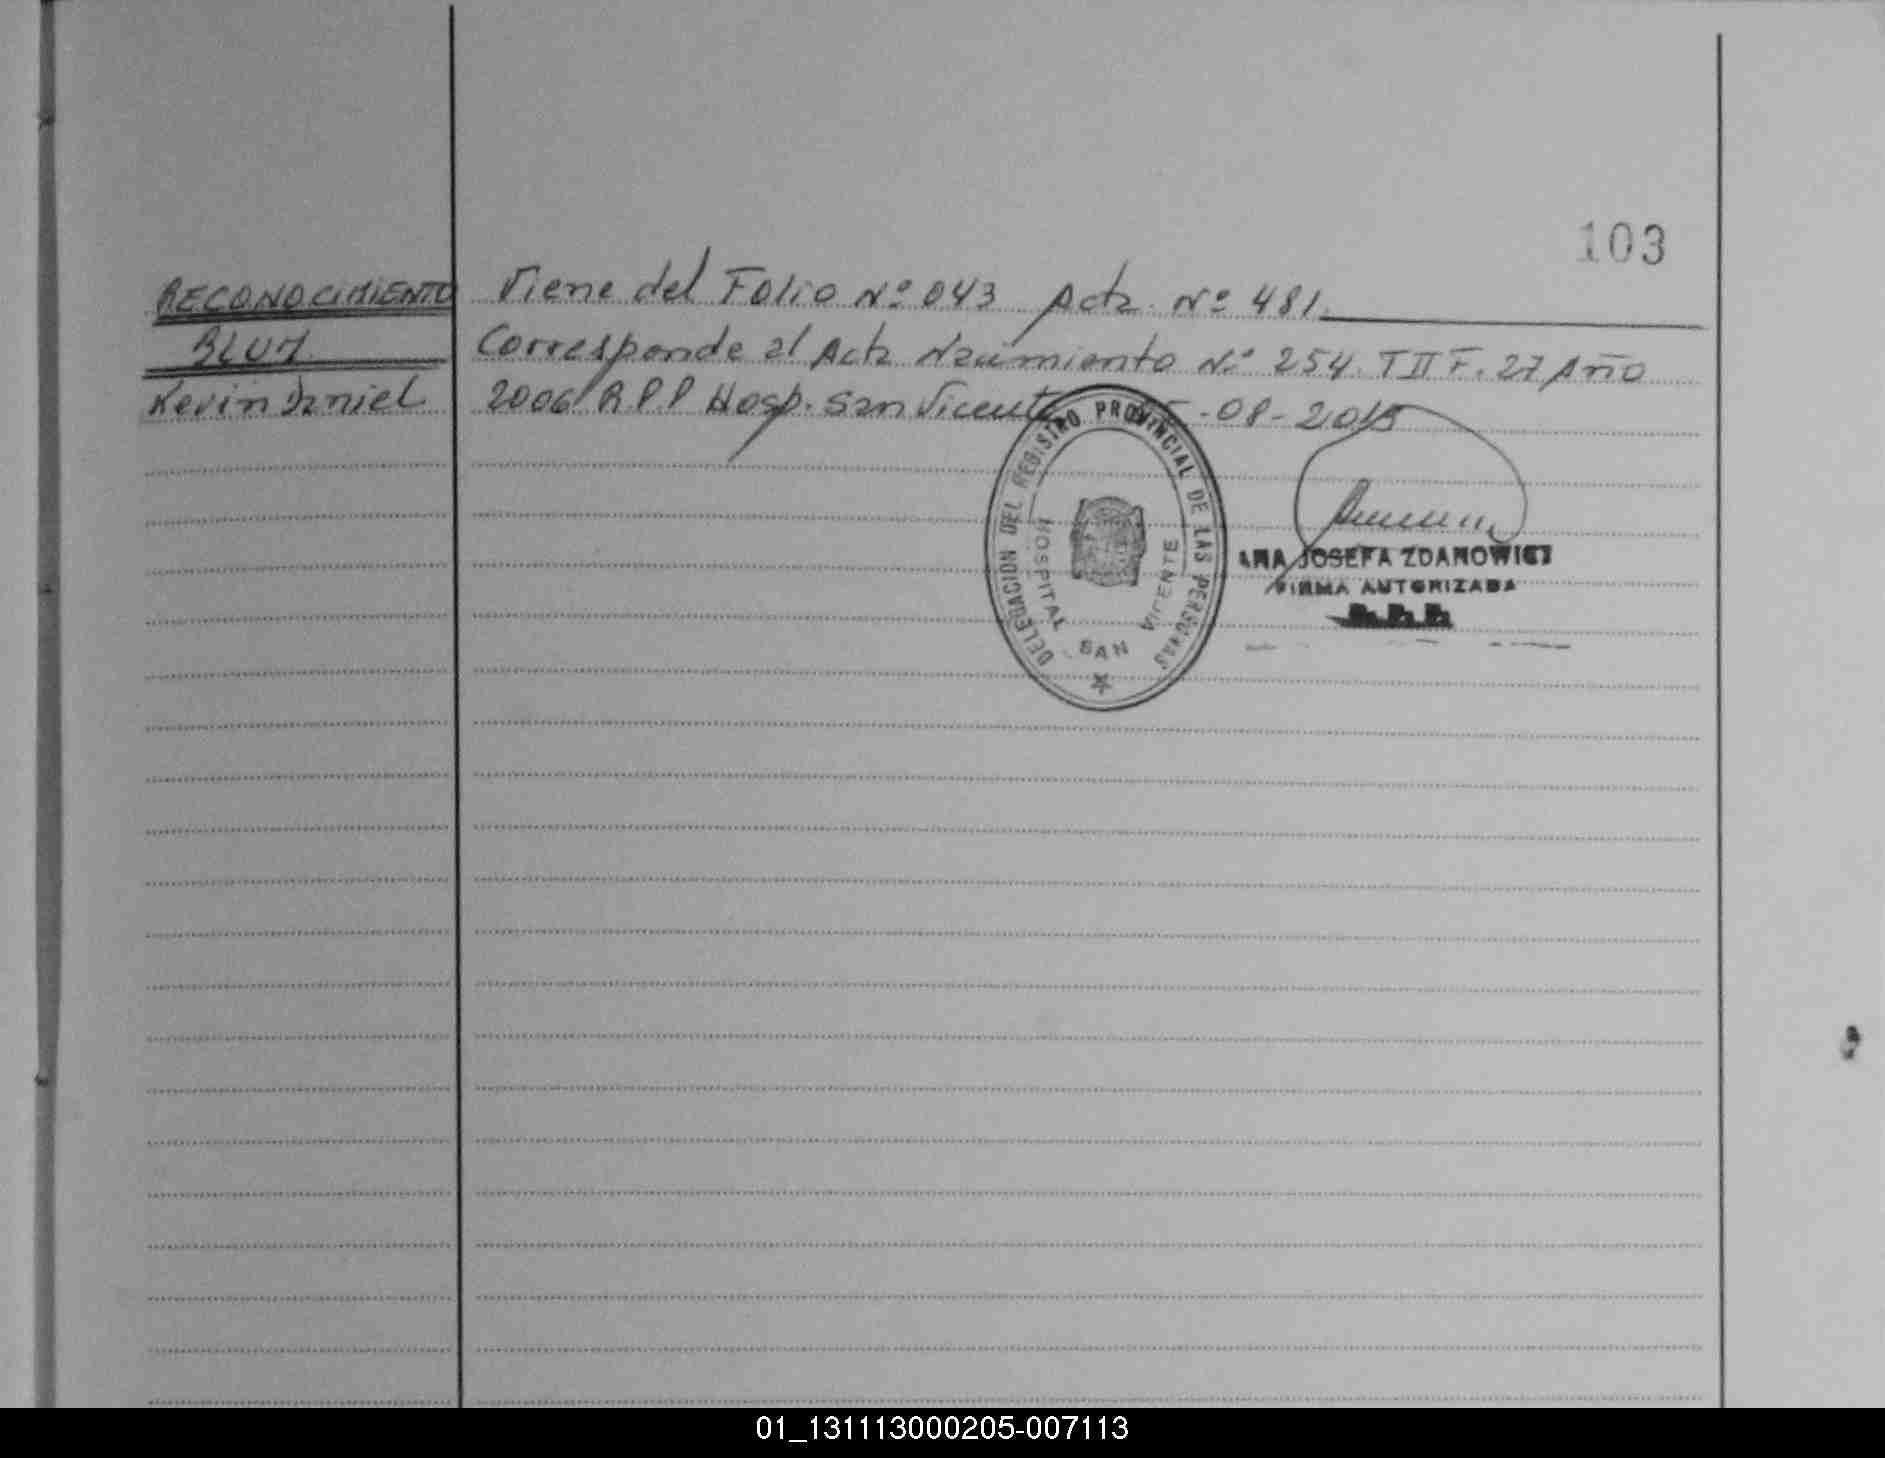 103
RECONOCIMIENTO Viene del Folio Nº 043 Acta Nº 481.
Corresponde al Acta Nacimiento Nº 254. T II F. 27 Año
Kevin Daniel 2006 R.P.P Hosp. San Vicente -08-
DELEGACION DEL REGISTRO PROVINCIAL DE LAS PERSONAS
HOSPITAL SAN VICENTE
JOSEFA ZDANOWICZ
FIRMA AUTORIZADA
01_131113000205-007113